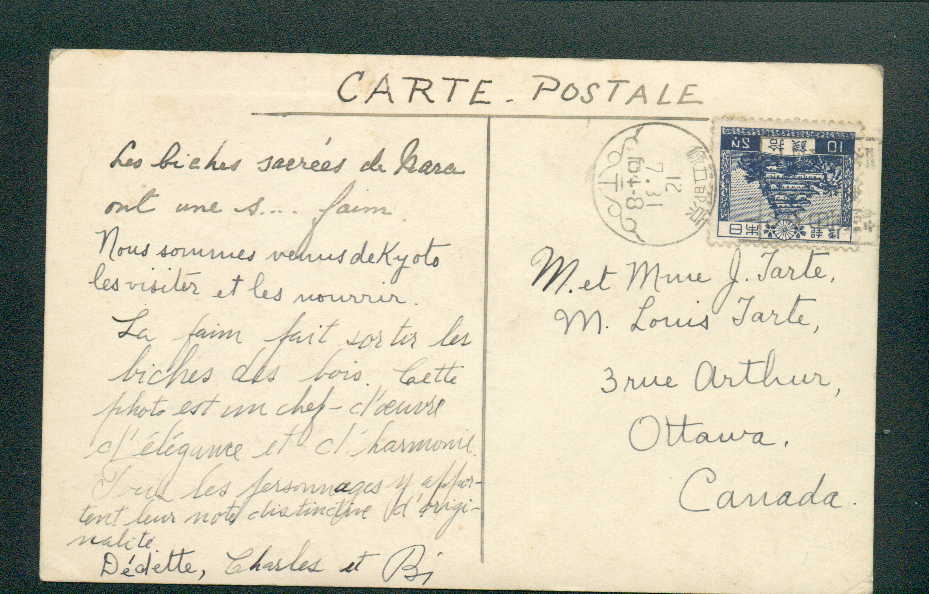 CARTE - POSTALE
Les biches sacrées de Nara
ont une s... faim.
Nous sommes venus de Kyoto
les visiter et les nourrir.
La faim fait sortir les
biches des bois. Cette
photo est un chef-d'œuvre
d'élégance et d'harmonie.
Tous les personnages y appor-
tent leur note distinctive d'origi-
nalité.
Dédette, Charles et Bi
12
7.31
后4-8
10 SN
拾錢
日本
郵便
M. et Mme J. Tarte,
M. Louis Tarte,
3 rue Arthur,
Ottawa.
Canada.